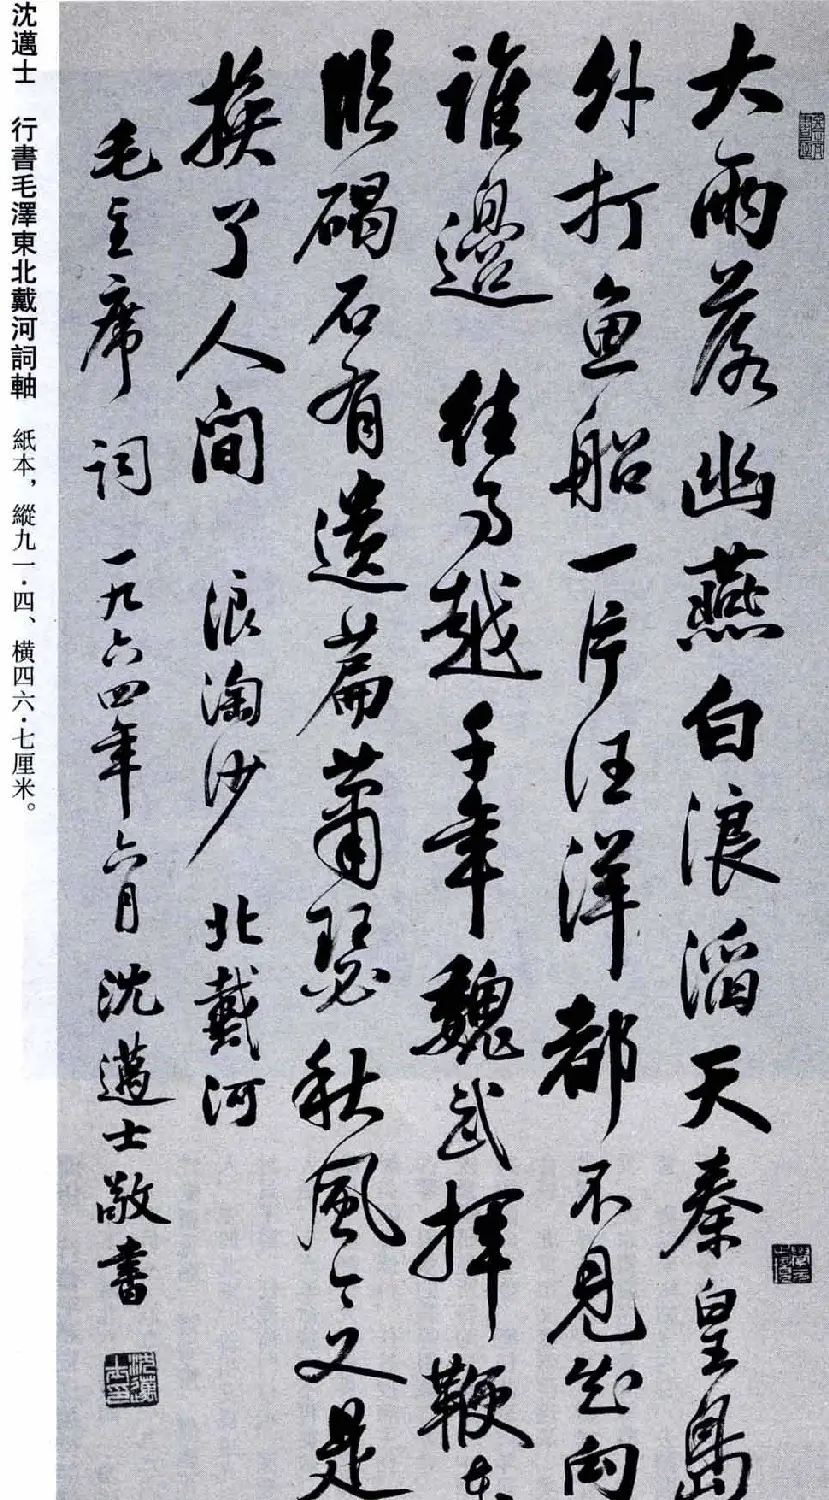 大雨落幽燕白浪滔天秦皇島
外打魚船一片汪洋都不見知向
誰邊 往事越千年魏武揮鞭東
臨碣石有遺篇蕭瑟秋風今又是
換了人間 浪淘沙 北戴河
毛主席詞 一九六四年六月沈邁士敬書
沈邁士印
沈邁士 行書毛澤東北戴河詞軸 紙本，縱九一·四、橫四六·七厘米。